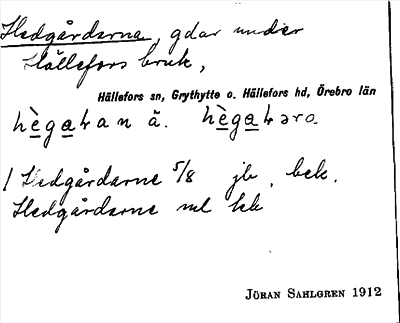 Hedgårdarna, gdar under
Hällefors bruk,
Hällefors sn, Grythytte o. Hällefors hd, Örebro län
hègaɬan ä. hègaɬəra
/ Hedgårdarne 5/8 jb, bek.
Hedgårdarne
JÖRAN SAHLGREN 1912